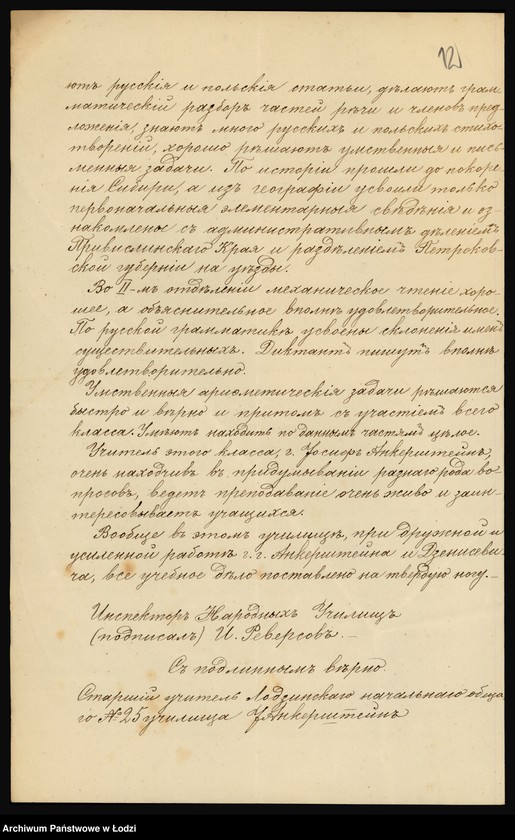 12
ютъ русскія и польскія статьи, дѣлаютъ грам-
матическій разборъ частей рѣчи и членовъ пред-
ложенія, знаютъ много русскихъ и польскихъ стихо-
твореній, хорошо рѣшаютъ умственныя и пись-
менныя задачи. По исторіи прошли до покоре-
нія Сибири, а изъ географіи усвоили только
первоначальныя элементарныя свѣдѣнія и оз-
накомлены съ административнымъ дѣленіемъ
Привислинскаго Края и раздѣленіемъ Петроков-
ской губерніи на уѣзды.
Во II-мъ отдѣленіи механическое чтеніе хоро-
шее, а объяснительное вполнѣ удовлетворительное.
По русской грамматикѣ усвоены склоненія именъ
существительныхъ. Диктантъ пишутъ вполнѣ
удовлетворительно.
Умственныя ариѳметическія задачи рѣшаются
быстро и вѣрно и притомъ съ участіемъ всего
класса. Умѣютъ находить по даннымъ частямъ цѣлое.
Учитель этого класса, г. Іосифъ Анкерштейнъ,
очень находчивъ въ придумываніи разнаго рода во-
просовъ, ведетъ преподаваніе очень живо и заин-
тересовываетъ учащихся.
Вообще въ этомъ училищѣ, при дружной и
усиленной работѣ г.г. Анкерштейна и Дзенисеви-
ча, все учебное дѣло поставлено на твердую ногу.—
Инспекторъ Народныхъ Училищъ
(подписалъ) И. Реверсовъ.—
Съ подлиннымъ вѣрно.
Старшій учитель Лодзинскаго начальнаго обща-
го № 25 училища ІАнкерштейнъ
Archiwum Państwowe w Łodzi